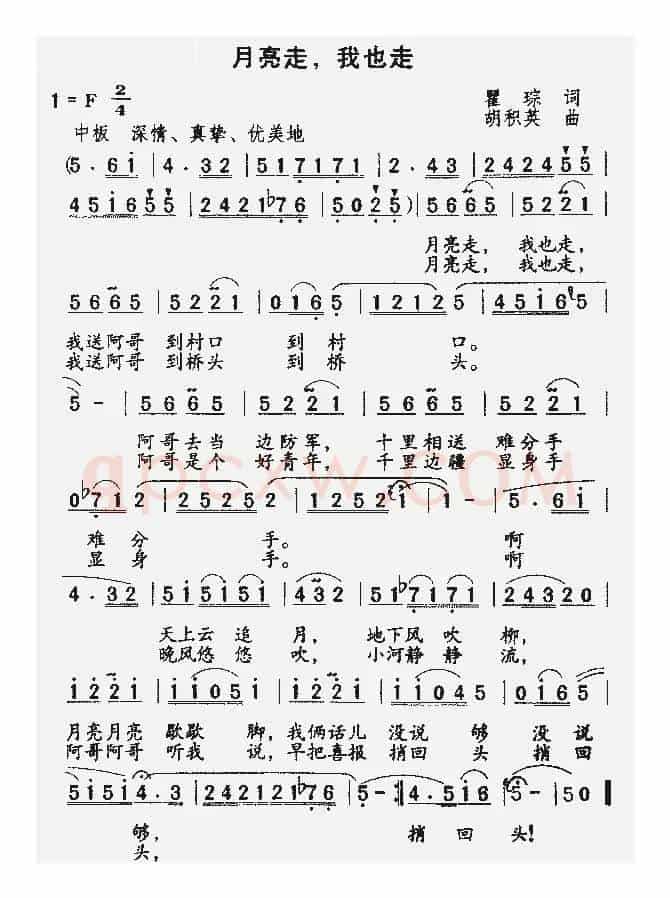 月亮走，我也走
1=F 2/4
瞿琮 词
胡积英 曲
中板 深情、真挚、优美地
(5·6i|4·32|517171|2·43|242455|
45i655|2421♭76|5025)|5665|5221|
月亮走， 我也走，
月亮走， 我也走，
5665|5221|0165|12125|45i65|
我送阿哥 到村口 到 村 口。
我送阿哥 到桥头 到 桥 头。
5-|5665|5221|5665|5221|
阿哥去当 边防军， 十里相送 难分手
阿哥是个 好青年， 千里边疆 显身手
0♭712|25252|12521|1-|5·6i|
难 分 手。 啊
显 身 手。 啊
4·32|5i5i5i|432|5i♭7171|24320|
天上云 追 月， 地下风 吹 柳，
晚风悠 悠 吹， 小河静 静 流，
i22i|ii05i|i22i|ii045|0i65|
月亮月亮 歇歇 脚，我俩话儿 没说 够 没说
阿哥阿哥 听我 说，早把喜报 捎回 头 捎回
5i5i4·3|242121♭76|5-:|4·5i6|5-|50‖
够， 捎 回 头！
头，
qpcxw.COM